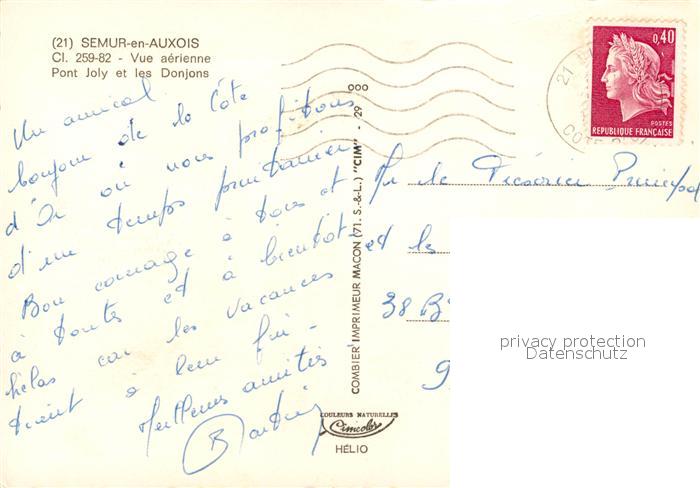 (21) SEMUR-en-AUXOIS
Cl. 259-82 - Vue aérienne
Pont Joly et les Donjons
Un amical
bonjour de la Côte
d'Or où nous profitons
d'un temps printanier
Bon courage à tous et
à toutes et à bientôt
hélas car les vacances
tirent à leur fin -
Meilleures amitiés
COMBIER IMPRIMEUR MACON (71. S.-&-L.) "CIM" - 29
000
COULEURS NATURELLES
Cimcolor
HÉLIO
0,40
POSTES
REPUBLIQUE FRANÇAISE
21
COTE
Mr le Trésorier Principal
et les
38 B
9
privacy protection
Datenschutz